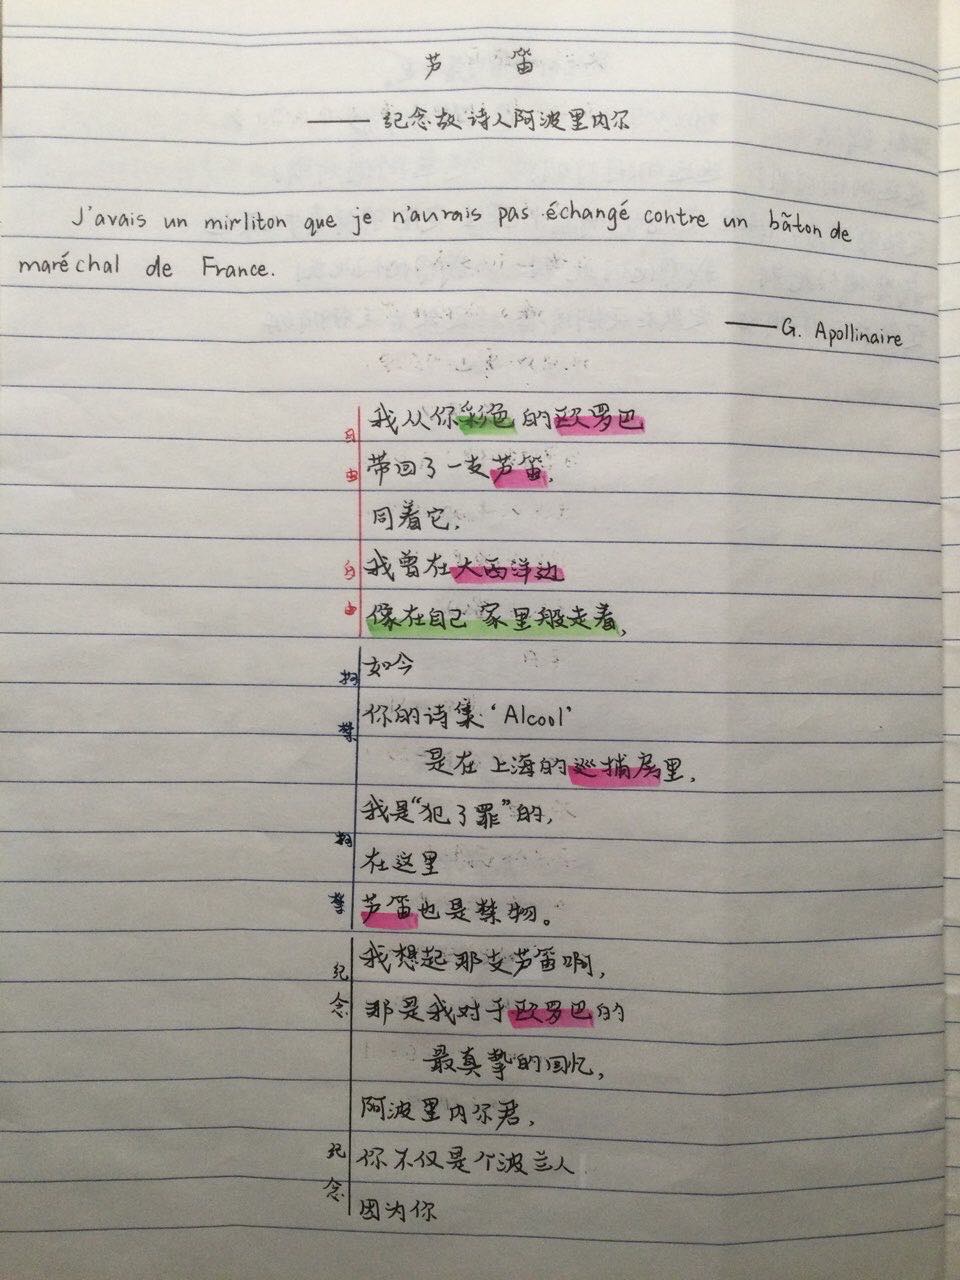 芦笛
——纪念故诗人阿波里内尔
J'avais un mirliton que je n'aurais pas échangé contre un bãton de
maréchal de France.
——G. Apollinaire
我从你彩色的欧罗巴
带回了一支芦笛,
同着它,
我曾在大西洋边
像在自己家里般走着,
自由
自由
如今
你的诗集‘Alcool’
是在上海的巡捕房里,
我是“犯了罪”的,
在这里
芦笛也是禁物。
拘禁
拘禁
我想起那支芦笛啊,
那是我对于欧罗巴的
最真挚的回忆,
阿波里内尔君,
你不仅是个波兰人
因为你
纪念
纪念